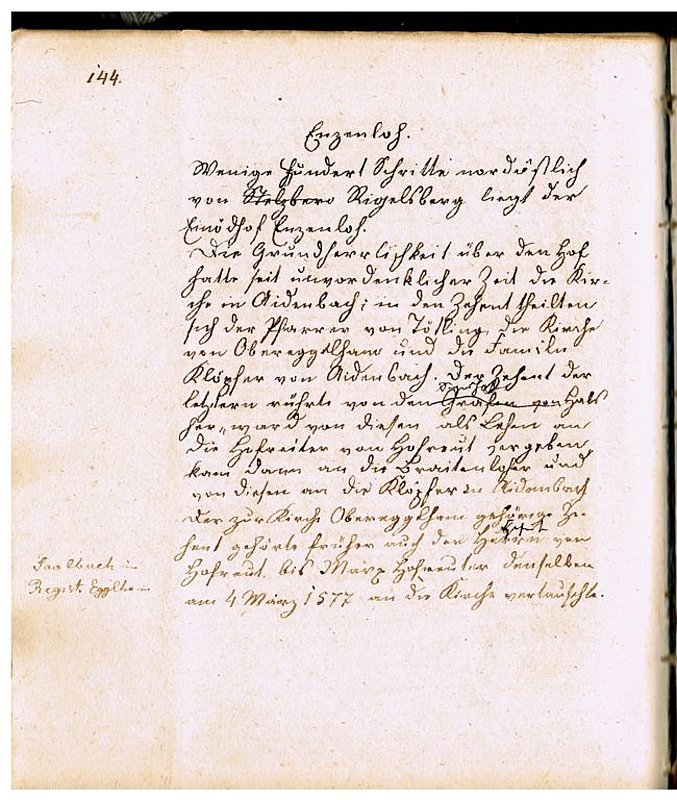 144.
Enzenloh.
Wenige hundert Schritte nordöstlich
von Stelzbero Rigelsberg liegt der
Einödhof Enzenloh.
Die Grundherrlichkeit über den Hof
hatte seit unvordenklicher Zeit die Kir-
che in Aidenbach; in den Zehent theilten
sich der Pfarrer von Tötling, die Kirche
von Obereggelham und die Familie
Klöpfer von Aidenbach. Der Zehent der
letztern rührte von den Grafen von Hals
her, ward von diesen als Lehen an
die Hofreiter von Hofreut vergeben,
kam dann an die Braitenloher und
von diesen an die Klöpfer in Aidenbach
Der zur Kirche Obereggelham gehörige Ze-
hent gehörte früher auch den Herrn von
Hofreut, bis Marx Hofreuter denselben
am 4 März 1577 an die Kirche vertauschte.
Saalbuch in
Regist. Egglham